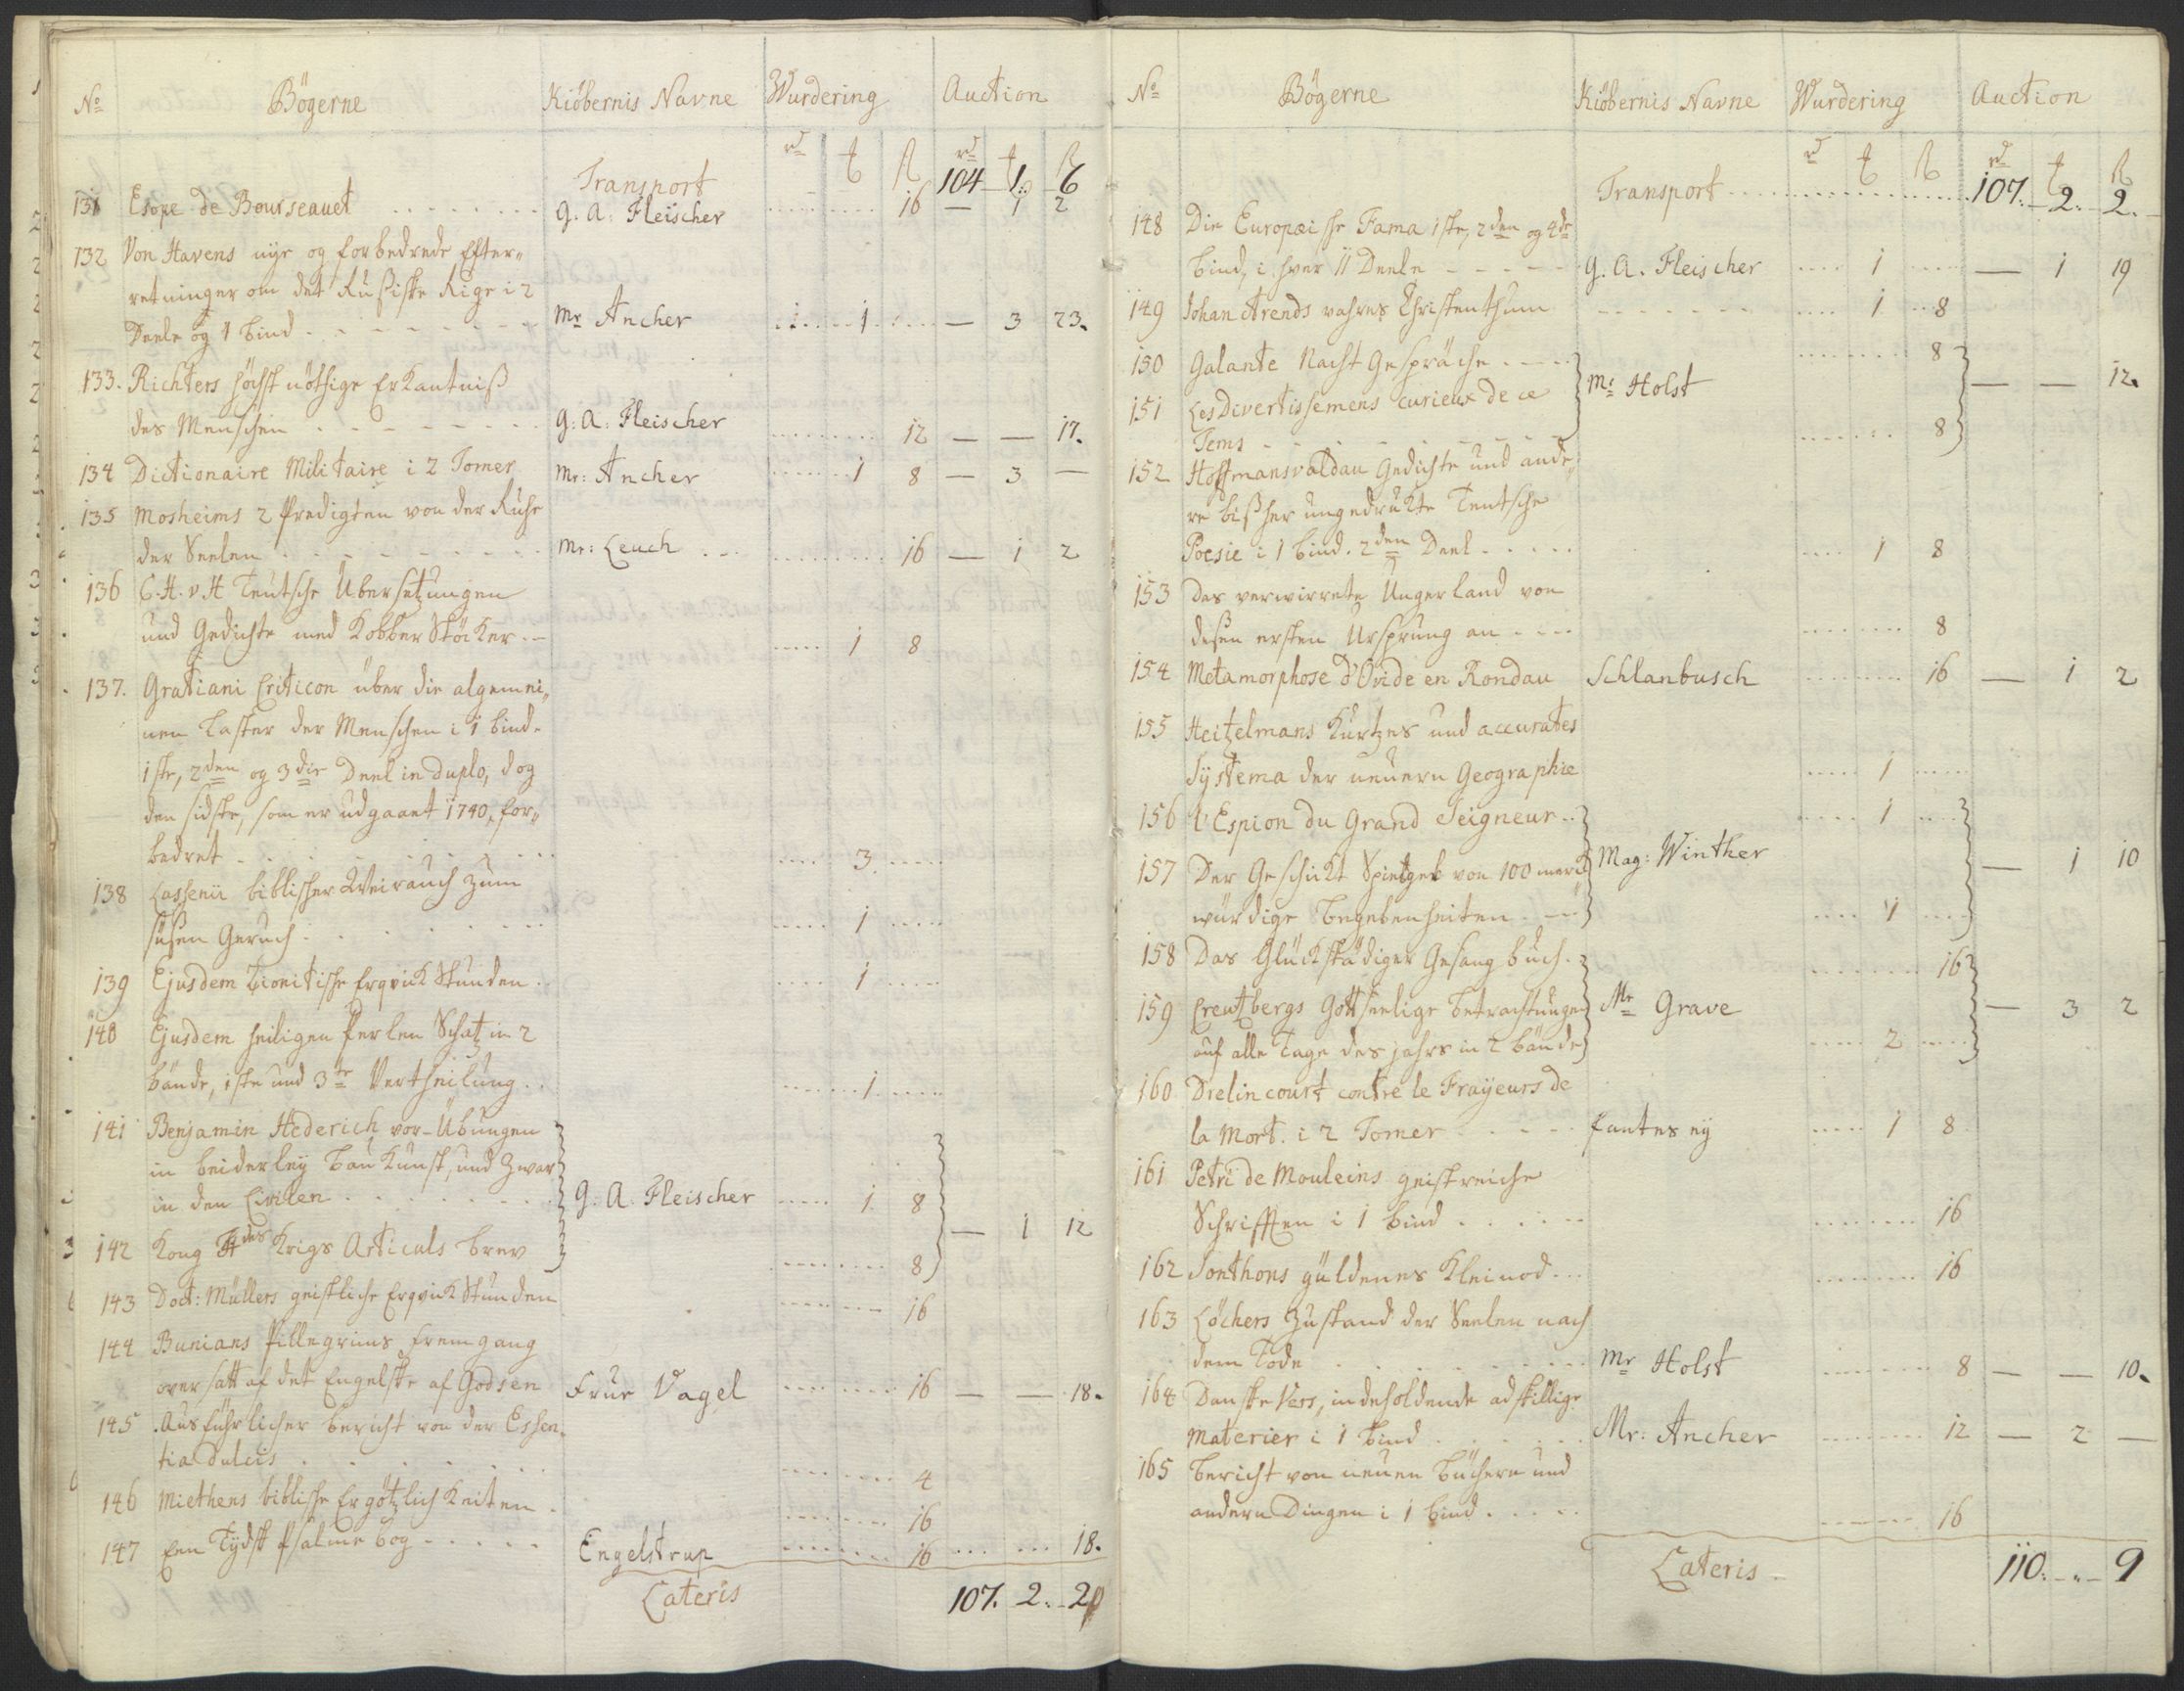 No Bögerne Kiöbernis Navne Wurdering Auction
rd ʈ ß rd ʈ ß
Transport 104 1 6
131 Esope de Bourseauet G. A. Fleischer 16 — 1 2
132 Von Havens nye og forbedrede Efter„
retninger om det Rußiske Rige i 2
Deele og 1 bind Mr Ancher 1 — 3 23.
133. Richters höchst nöthige Erkantniß
des Menschen G. A. Fleischer 12 — — 17.
134 Dictionaire Militaire i 2 Tomer Mr: Ancher 1 8 — 3 —
135 Mosheims 2 Predigten von der Ruhe
der Seelen Mr: Leuch 16 — 1 2
136 C. H. v. H Teutsche Übersetzungen
und Gedichte med Kobber Stöcker 1 8
137. Gratiani Criticon über die algemei„
nen Laster der Menschen i 1 bind.
1ste, 2den og 3die Deel in duplo, dog
den sidste, som er udgaaet 1740, for„
bedret 3
138 Lassenii biblischer Weirauch zum
süßen Geruch 1
139 Ejusdem Zionitische Erqvick Stunden 1
140 Ejusdem heiligen Perlen Schatz in 2
bände, 1ste und 3te Vertheilung 1
141 Benjamin Hederich vor-Übungen
in beiderley Bau Kunst, und zwar
in den Civilen G. A. Fleischer 1 8 — 1 12
142 Kong des Krigs Articuls brev 8
143 Doct: Müllers geistliche Erqvick Stunden 16
144 Bunians Pillegrims fremgang
oversatt af det Engelske af Godsen Frue Vagel 16 — — 18.
145 Ausführlicher bericht von der Essen„
tia dulcis 4
146 Miethens biblische Ergötzlichkeiten 16
147 Een Tydsk Psalme bog Engelstrup 16 18.
Lateris 107. 2. 2ß
No Bögerne Kiöbernis Navne Wurdering Auction
rd ʈ ß rd ʈ ß
Transport 107. 2. 2.
148 Die Europæische Fama 1ste, 2den og 4de
bind, i hver 11 Deele G. A. Fleischer 1 — 1 19
149 Johan Arends wahres Christenthum 1 8
150 Galante Nacht Gespräche 8
151 Les Divertissemens curieux de ce Mr Holst — — 12.
Tems 8
152 Hoffmansvaldau Gedichte und ande„
re bißher ungedrukte Teutsche
Poesie i 1 bind. 2den Deel 1 8
153 Das verwirrete Ungerland von
deßen ersten Ursprung an 8
154 Metamorphose d'Ovide en Rondau Schlanbusch 16 — 1 2
155 Heitzelmans Kurtzes und accurates
Systema der neuern Geographie 1
156 l'Espion du Grand Seigneur 1
157 Der Geschickt Spiegel von 100 merck Mag: Winther — 1 10
würdige Begebenheiten 1
158 Das Glückstädiger Gesang buch 16
159 Creutzbergs Gottseelige betrachtungen Mr Grave — 3 2
auf alle Tage des jahrs in 2 bände 2
160 Drelincourt contre le Frayeurs de
la Mort. i 2 Tomer Fantesey 1 8
161 Petri de Mouleins geistreiche
Schrifften i 1 bind 16
162 Sonthons güldenes Kleinod 16
163 Löchers Zustand der Seelen nach
dem Tode Mr Holst 8 — — 10.
164 Danske Vers, indeholdende adskillige
Materier i 1 bind Mr: Ancher 12 — 2 —
165 Bericht von neuen Büchern und
andern Dingen i 1 bind 16
Lateris 110. - 9